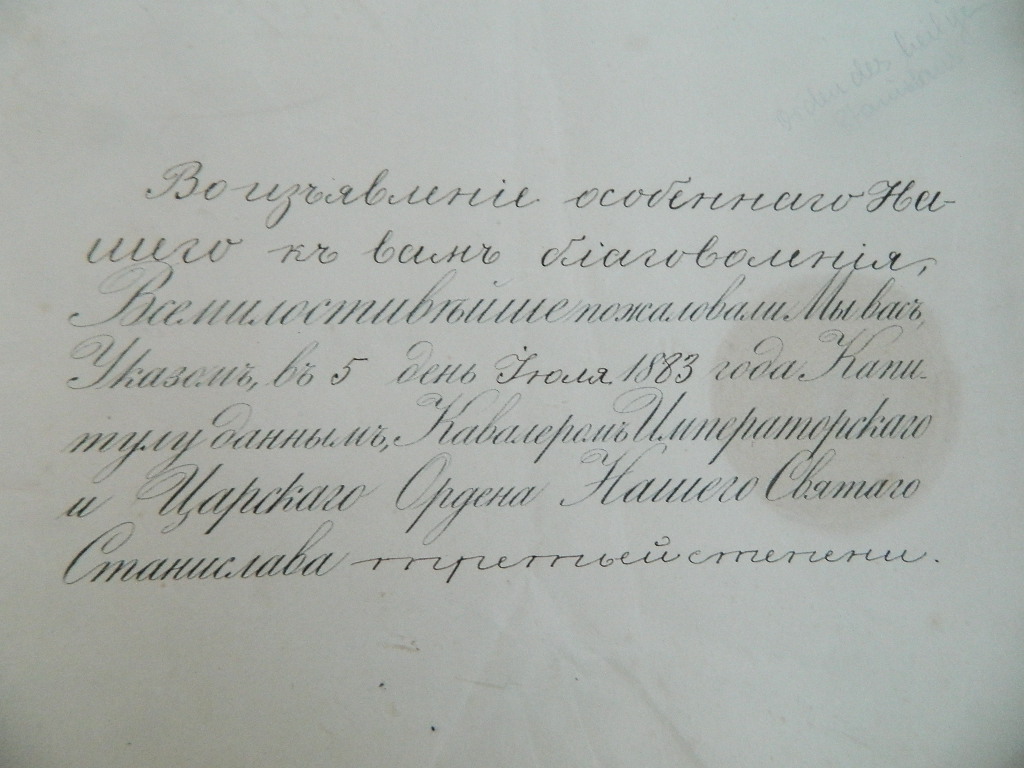 Orden des heilige
Во изъявленіе особеннаго На-
шего къ вамъ благоволенія,
Всемилостивѣйше пожаловали Мы васъ,
Указомъ, въ 5 день Іюля 1883 года Капи-
тулу даннымъ, Кавалеромъ Императорскаго
и Царскаго Ордена Нашего Святаго
Станислава третьей степени.